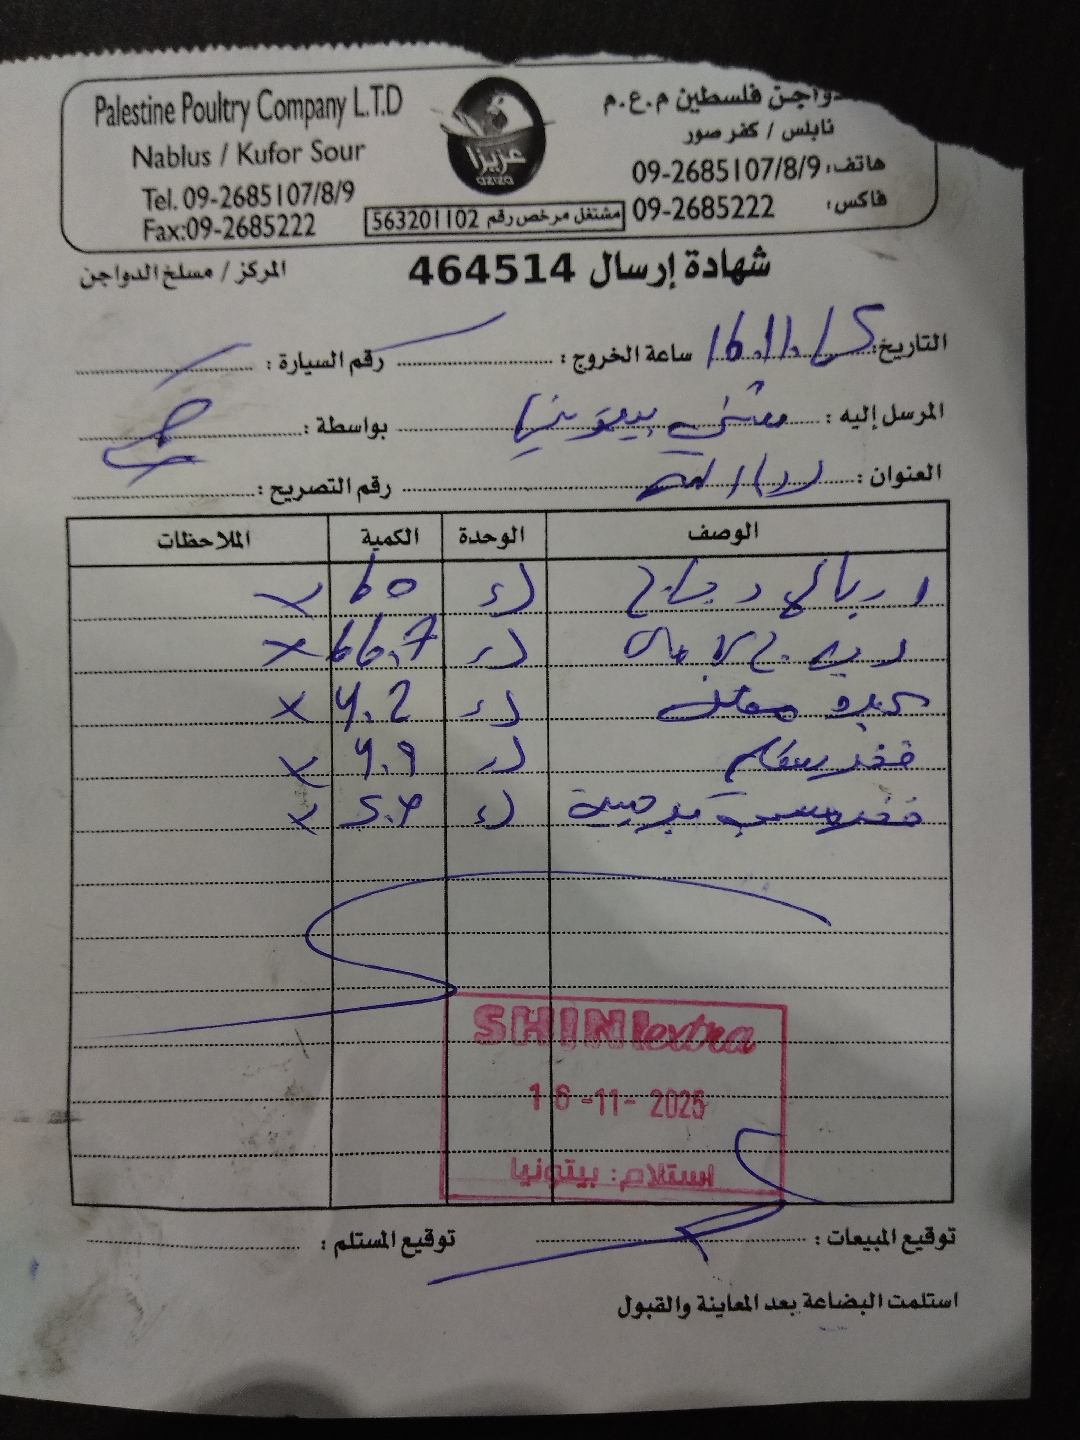 Palestine Poultry Company L.T.D
Nablus / Kufor Sour
Tel. 09-2685107/8/9
Fax:09-2685222
عزيزا
aziza
دواجن فلسطين م.ع.م
نابلس / كفر صور
هاتف: 09-2685107/8/9
فاكس: 09-2685222
مشتغل مرخص رقم 563201102
شهادة إرسال 464514
المركز / مسلخ الدواجن
التاريخ: 16.11. ساعة الخروج: رقم السيارة:
المرسل إليه: بيتونيا بواسطة:
العنوان: رام الله رقم التصريح:
الوصف الوحدة الكمية الملاحظات
دجاج 60 ×
66.7 ×
كبد 4.2 ×
فخد 4.9 ×
فخد ×
SHINI extra
16 -11- 2025
استلام: بيتونيا
توقيع المبيعات: توقيع المستلم:
استلمت البضاعة بعد المعاينة والقبول